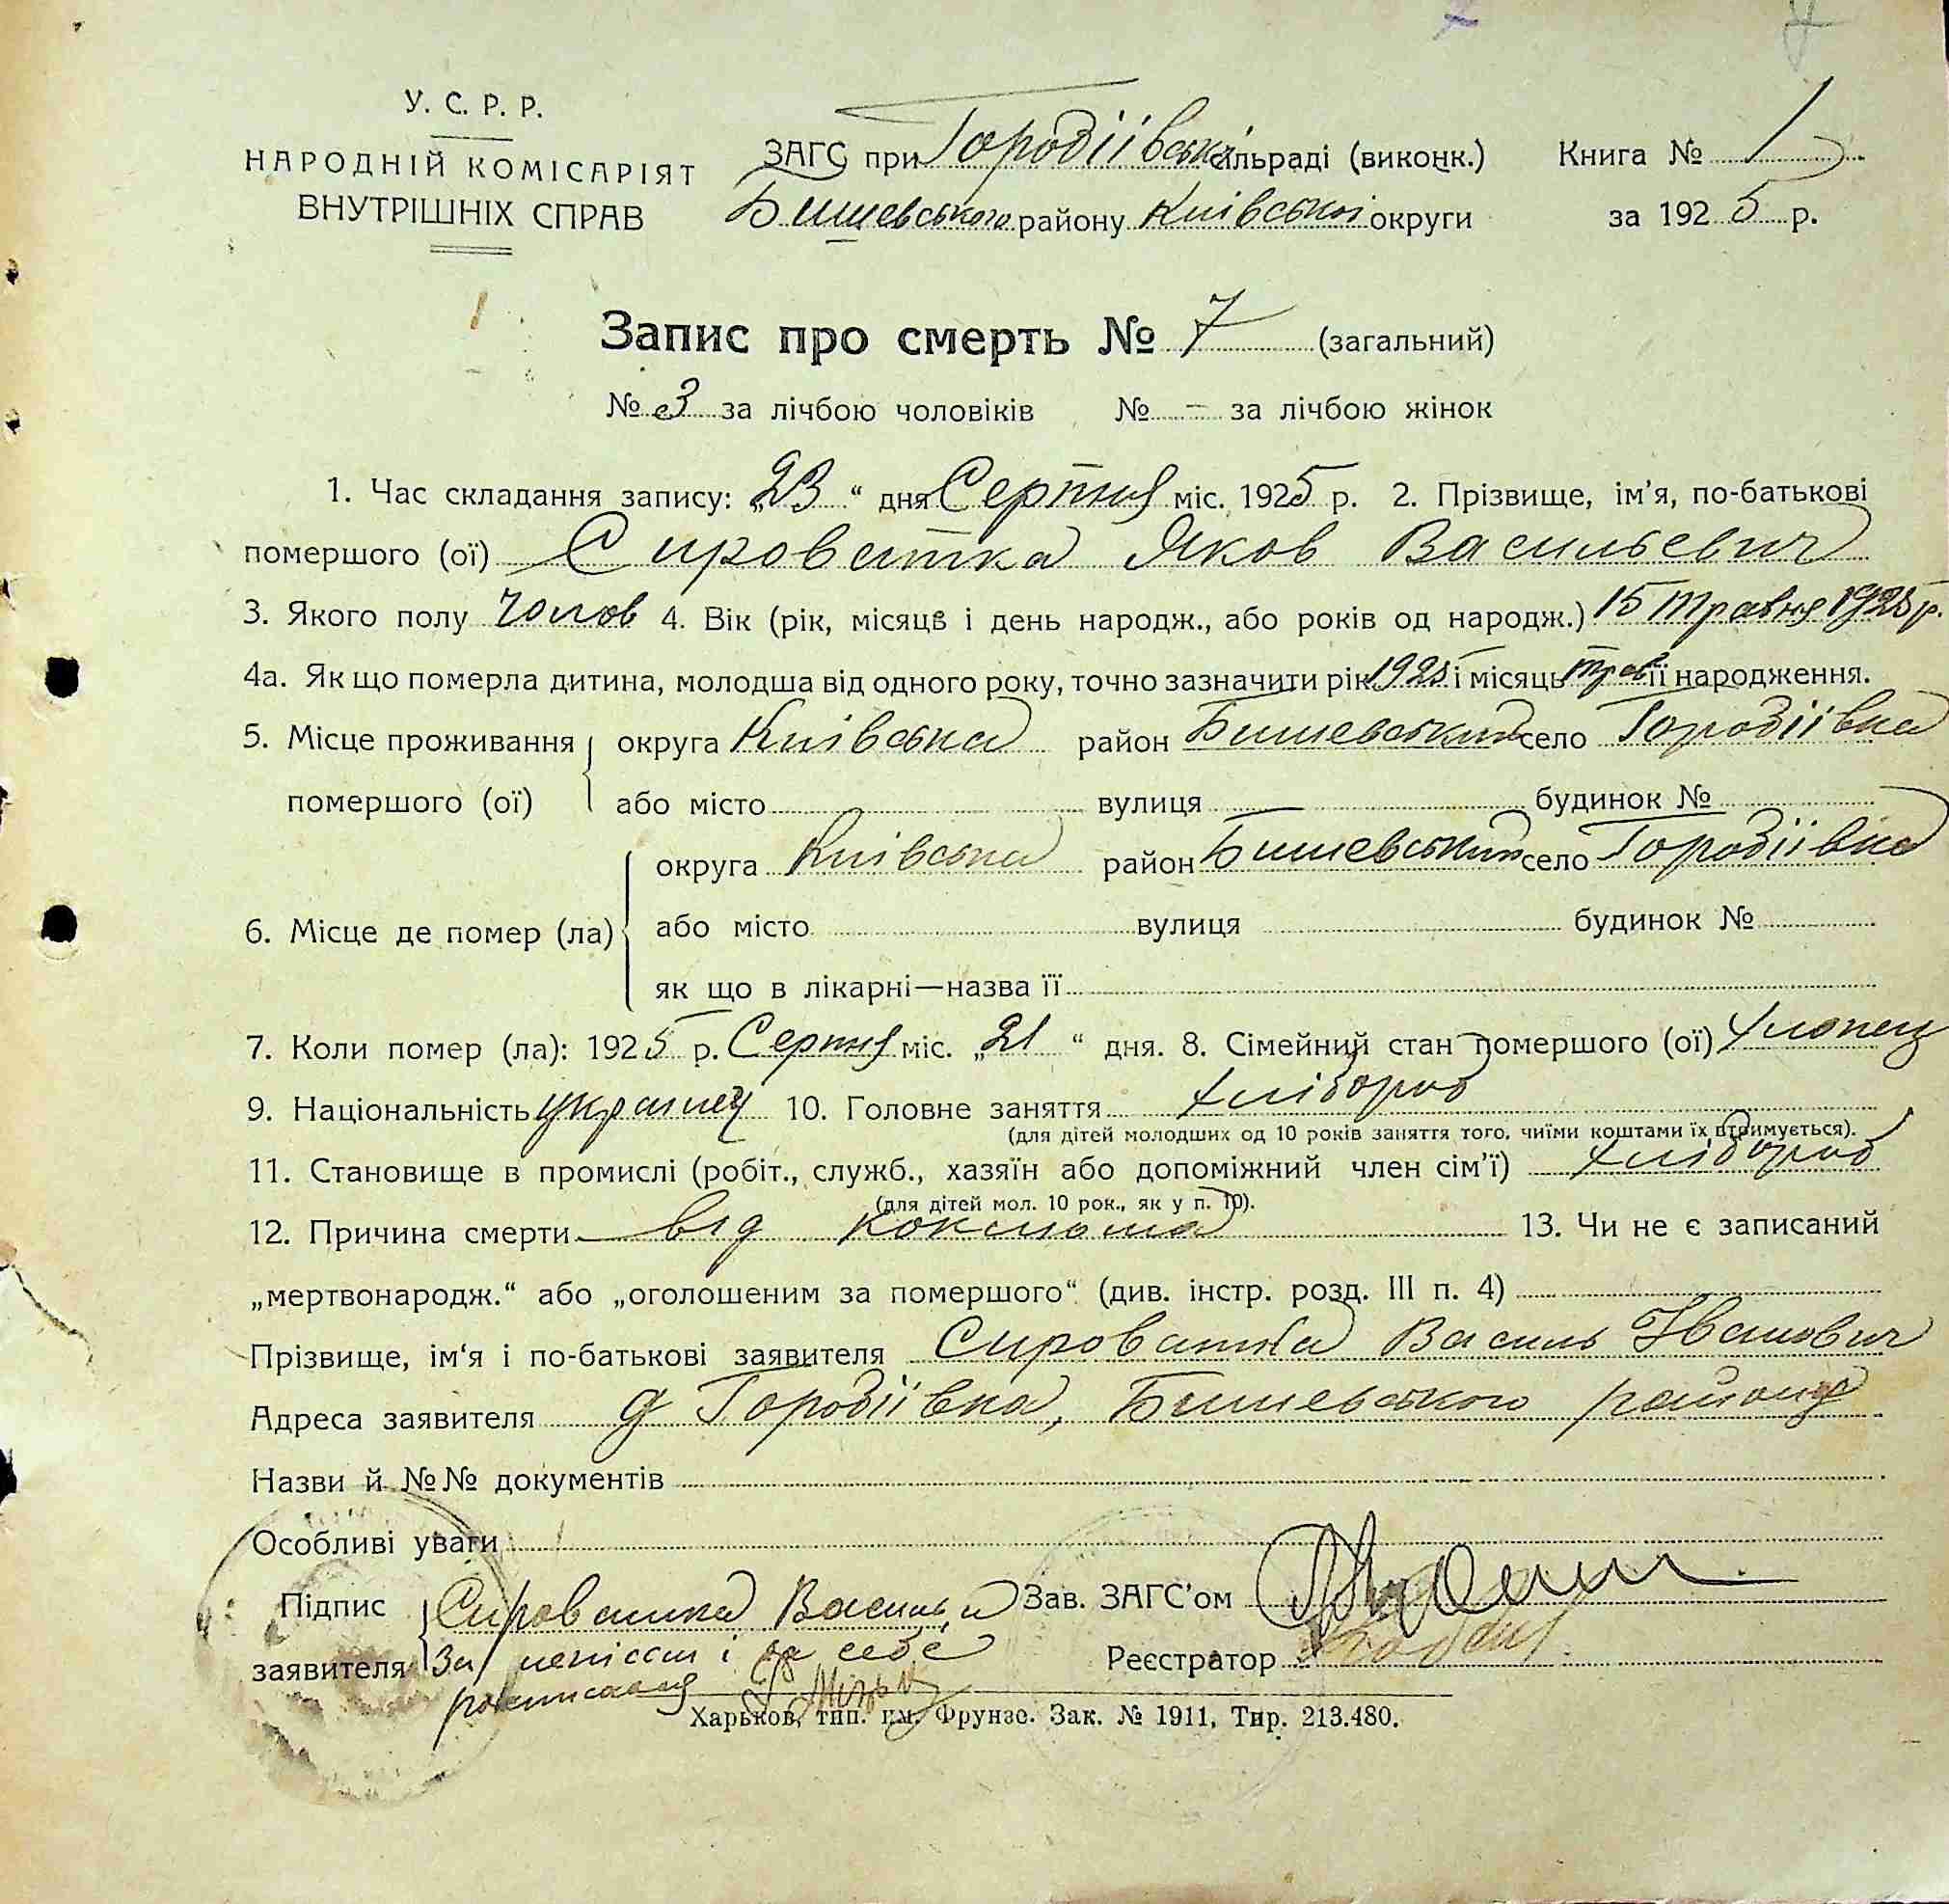 У. С. Р. Р.
НАРОДНІЙ КОМІСАРІЯТ
ВНУТРІШНІХ СПРАВ
ЗАГС при Городіївські сільраді (виконк.)
Бишевського району Київської округи
Книга № 1
за 1925 р.
Запис про смерть № 7 (загальний)
№ 3 за лічбою чоловіків № - за лічбою жінок
1. Час складання запису: „23 “ дня Серпня міс. 1925 р. 2. Прізвище, ім'я, по-батькові
помершого (ої) Сироватка Яков Васильевич
3. Якого полу чолов 4. Вік (рік, місяць і день народж., або років од народж.) 15 травня 1925 р.
4а. Як що померла дитина, молодша від одного року, точно зазначити рік 1925 і місяць трав її народження.
5. Місце проживання помершого (ої) округа Київська район Бишевський село Городіївка
або місто вулиця будинок №
6. Місце де помер (ла) округа Київська район Бишевський село Городіївка
або місто вулиця будинок №
як що в лікарні—назва її
7. Коли помер (ла): 1925 р. Серпня міс. „21 “ дня. 8. Сімейний стан помершого (ої) хлопец
9. Національність украінец 10. Головне заняття хлібороб
(для дітей молодших од 10 років заняття того, чиїми коштами їх втримується).
11. Становище в промислі (робіт., служб., хазяїн або допоміжний член сім'ї) хлібороб
(для дітей мол. 10 рок., як у п. 10).
12. Причина смерти від коклюша 13. Чи не є записаний
„мертвонародж.“ або „оголошеним за помершого“ (див. інстр. розд. III п. 4)
Прізвище, ім'я і по-батькові заявителя Сироватка Василь Іванович
Адреса заявителя д Городіївка, Бишевського району
Назви й №№ документів
Особливі уваги
Підпис заявителя Сироватка Василь
За і за себе
росписался
Зав. ЗАГС'ом
Реєстратор
Харьков, тип. им. Фрунзе. Зак. № 1911, Тир. 213.480.